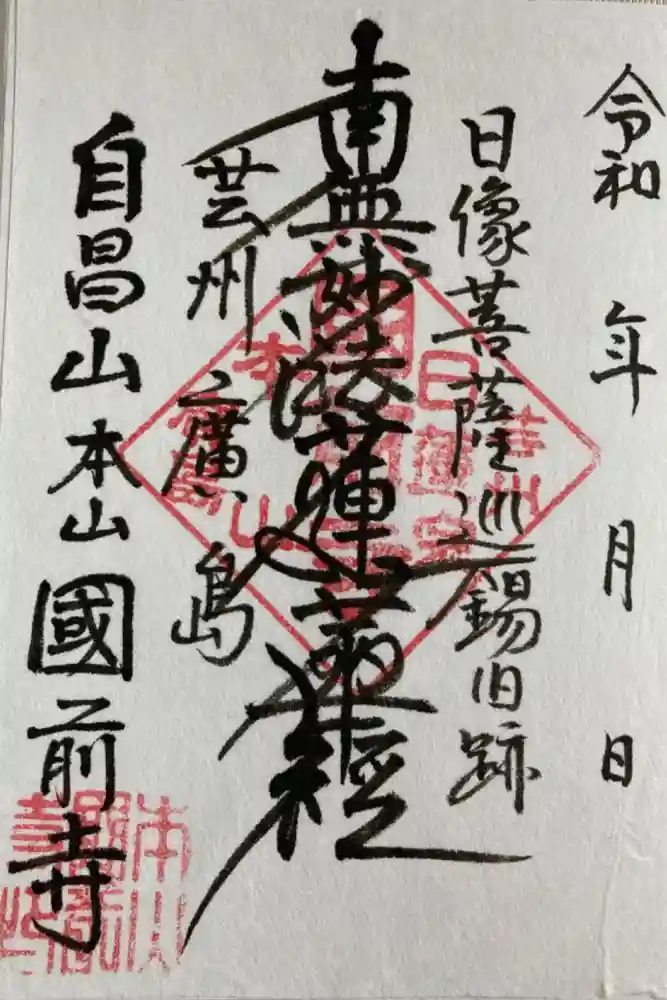 令和 年 月 日
日像菩薩巡錫旧跡
南無妙法蓮華経
芸州廣島
自昌山本山國前寺